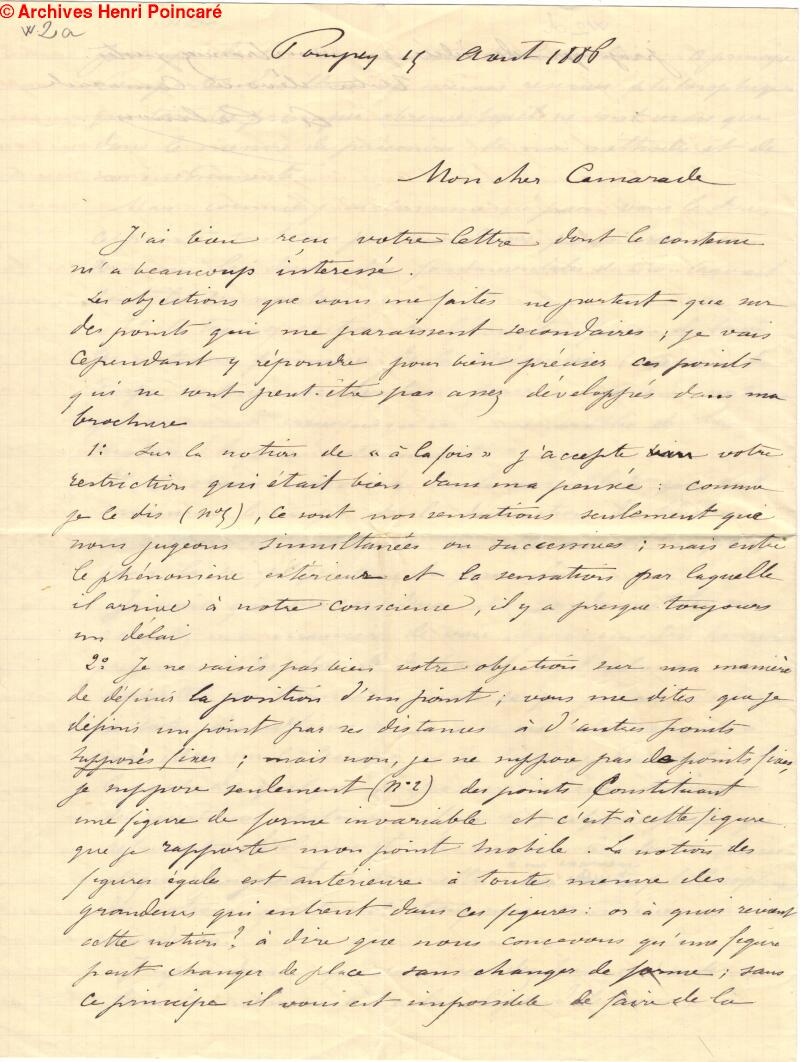 © Archives Henri Poincaré
Pompey 15 Aout 1886
Mon cher Camarade
J'ai bien reçu votre lettre dont le contenu
m'a beaucoup intéressé.
Les objections que vous me faites ne portent que sur
des points qui me paraissent secondaires ; je vais
cependant y répondre pour bien préciser ces points
qui ne sont peut-être pas assez développés dans ma
brochure
1º Sur la notion de « à la fois » j'accepte votre
restriction qui était bien dans ma pensée : comme
je le dis (nº5), ce sont nos sensations seulement que
nous jugeons simultanées ou successives ; mais entre
le phénomène extérieur et la sensation par laquelle
il arrive à notre conscience, il y a presque toujours
un délai
2º Je ne saisis pas bien votre objection sur ma manière
de définir la position d'un point ; vous me dites que je
définis un point par ses distances à d'autres points
supposés fixes ; mais non, je ne suppose pas de points fixes,
je suppose seulement (Nº2) des points constituant
une figure de forme invariable et c'est à cette figure
que je rapporte mon point mobile. La notion des
figures égales est antérieure à toute mesure des
grandeurs qui entrent dans ces figures : or à quoi revient
cette notion ? à dire que nous concevons qu'une figure
peut changer de place sans changer de forme ; sans
ce principe il vous est impossible de faire de la